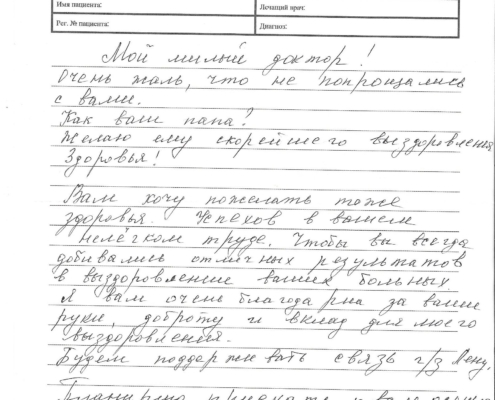 Имя пациента: Лечащий врач:
Рег. № пациента: Диагноз:
Мой милый доктор!
Очень жаль, что не попрощались
с вами.
Как ваш папа?
Желаю ему скорейшего выздоровления
Здоровья!
Вам хочу пожелать тоже
здоровья. Успехов в вашем
нелёгком труде. Чтобы вы всегда
добивались отличных результатов
в выздоровление ваших больных
Я вам очень благодарна за ваши
руки, доброту и вклад для моего
выздоровления.
Будем поддерживать связь ч/з Лену.
Планирую приехать к вам